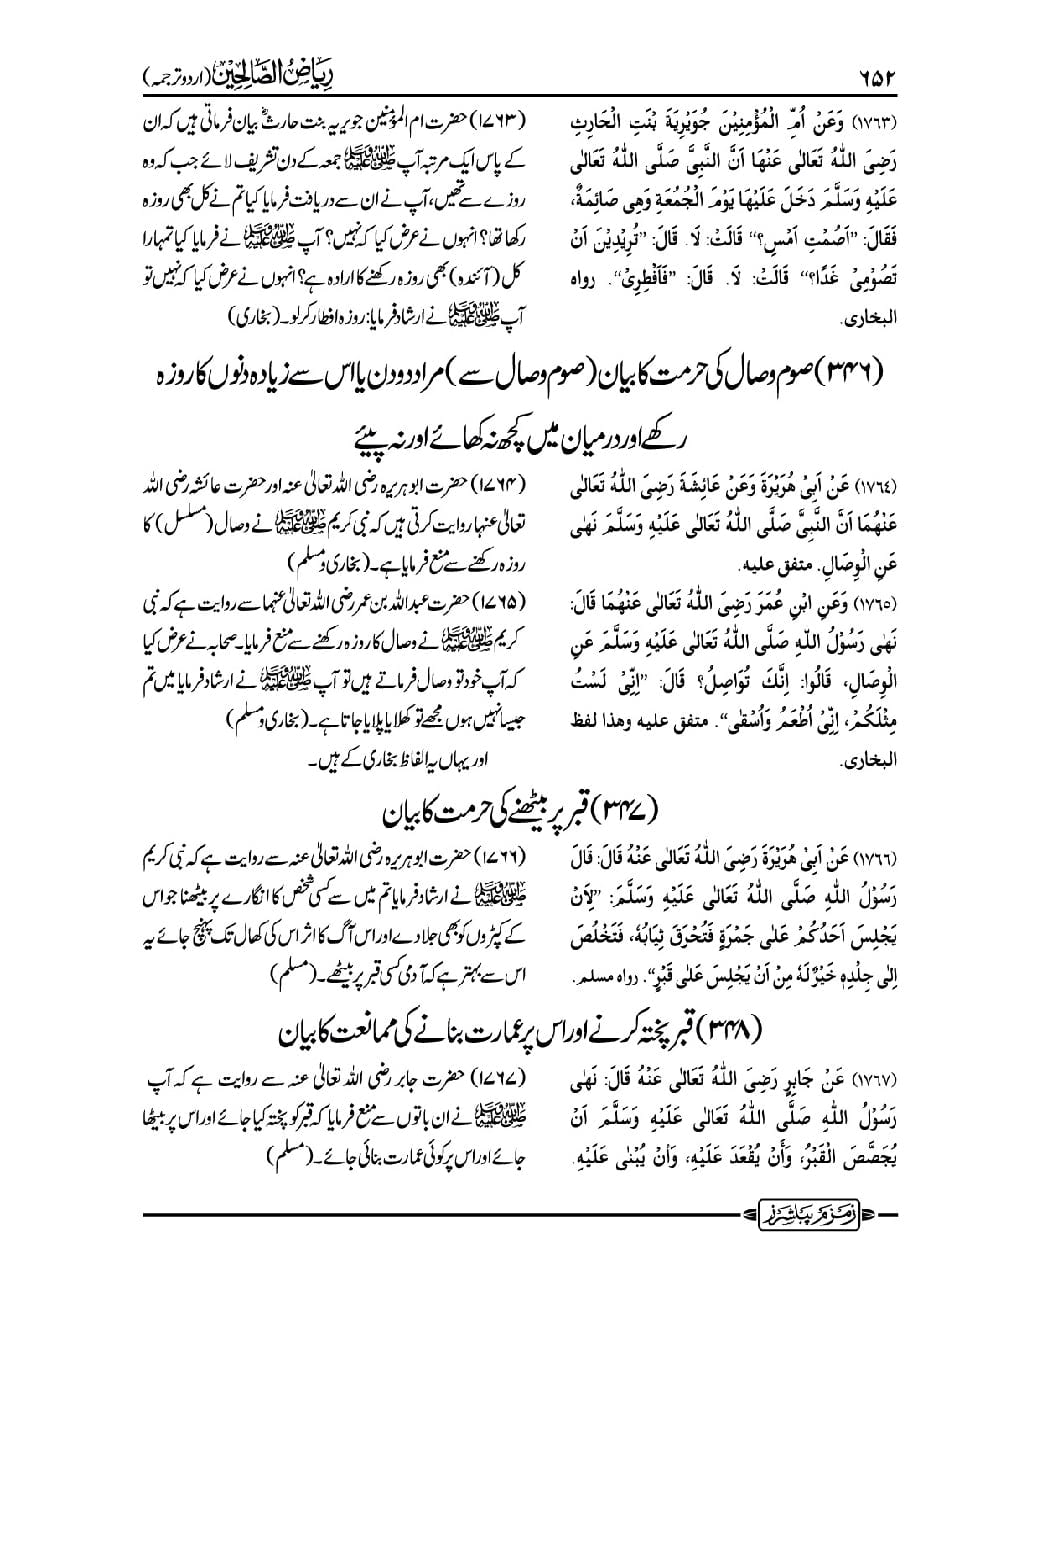 ۶۵۲
ریاض الصالحین (اردو ترجمہ)
(١٧٦٣) وَعَنْ اُمِّ الْمُؤْمِنِيْنَ جُوَيْرِيَةَ بِنْتِ الْحَارِثِ
رَضِيَ اللّٰهُ تَعَالٰى عَنْهَا اَنَّ النَّبِيَّ صَلَّى اللّٰهُ تَعَالٰى
عَلَيْهِ وَسَلَّمَ دَخَلَ عَلَيْهَا يَوْمَ الْجُمُعَةِ وَهِيَ صَائِمَةٌ،
فَقَالَ: ”اَصُمْتِ اَمْسِ؟“ قَالَتْ: لَا. قَالَ: ”تُرِيْدِيْنَ اَنْ
تَصُوْمِيْ غَدًا؟“ قَالَتْ: لَا. قَالَ: ”فَاَفْطِرِيْ“. رواه
البخاری.
(۱۷۶۳) حضرت ام المؤمنین جویریہ بنت حارثؓ بیان فرماتی ہیں کہ ان
کے پاس ایک مرتبہ آپ ﷺ جمعہ کے دن تشریف لائے جب کہ وہ
روزے سے تھیں، آپ نے ان سے دریافت فرمایا کیا تم نے کل بھی روزہ
رکھا تھا؟ انہوں نے عرض کیا کہ نہیں؟ آپ ﷺ نے فرمایا کیا تمہارا
کل (آئندہ) بھی روزہ رکھنے کا ارادہ ہے؟ انہوں نے عرض کیا کہ نہیں تو
آپ ﷺ نے ارشاد فرمایا: روزہ افطار کر لو۔ (بخاری)
(۳۴۶) صوم وصال کی حرمت کا بیان (صوم وصال سے) مراد دو دن یا اس سے زیادہ دنوں کا روزہ
رکھے اور درمیان میں کچھ نہ کھائے اور نہ پیئے
(١٧٦٤) عَنْ اَبِيْ هُرَيْرَةَ وَعَنْ عَائِشَةَ رَضِيَ اللّٰهُ تَعَالٰى
عَنْهُمَا اَنَّ النَّبِيَّ صَلَّى اللّٰهُ تَعَالٰى عَلَيْهِ وَسَلَّمَ نَهٰى
عَنِ الْوِصَالِ. متفق عليه.
(۱۷۶۴) حضرت ابوہریرہ رضی اللہ تعالیٰ عنہ اور حضرت عائشہ رضی اللہ
تعالیٰ عنہا روایت کرتی ہیں کہ نبی کریم ﷺ نے وصال (مسلسل) کا
روزہ رکھنے سے منع فرمایا ہے۔ (بخاری و مسلم)
(١٧٦٥) وَعَنِ ابْنِ عُمَرَ رَضِيَ اللّٰهُ تَعَالٰى عَنْهُمَا قَالَ:
نَهٰى رَسُوْلُ اللّٰهِ صَلَّى اللّٰهُ تَعَالٰى عَلَيْهِ وَسَلَّمَ عَنِ
الْوِصَالِ، قَالُوْا: اِنَّكَ تُوَاصِلُ؟ قَالَ: ”اِنِّيْ لَسْتُ
مِثْلَكُمْ، اِنِّيْ اُطْعَمُ وَاُسْقٰى“. متفق عليه وهذا لفظ
البخاری.
(۱۷۶۵) حضرت عبداللہ بن عمر رضی اللہ تعالیٰ عنہما سے روایت ہے کہ نبی
کریم ﷺ نے وصال کا روزہ رکھنے سے منع فرمایا۔ صحابہ نے عرض کیا
کہ آپ خود تو وصال فرماتے ہیں تو آپ ﷺ نے ارشاد فرمایا میں تم
جیسا نہیں ہوں مجھے تو کھلایا پلایا جاتا ہے۔ (بخاری و مسلم)
اور یہاں یہ الفاظ بخاری کے ہیں۔
(۳۴۷) قبر پر بیٹھنے کی حرمت کا بیان
(١٧٦٦) عَنْ اَبِيْ هُرَيْرَةَ رَضِيَ اللّٰهُ تَعَالٰى عَنْهُ قَالَ: قَالَ
رَسُوْلُ اللّٰهِ صَلَّى اللّٰهُ تَعَالٰى عَلَيْهِ وَسَلَّمَ: ”لَاَنْ
يَجْلِسَ اَحَدُكُمْ عَلٰى جَمْرَةٍ فَتُحْرَقَ ثِيَابُهُ، فَتَخْلُصَ
اِلٰى جِلْدِهٖ خَيْرٌ لَهٗ مِنْ اَنْ يَجْلِسَ عَلٰى قَبْرٍ“. رواه مسلم.
(۱۷۶۶) حضرت ابوہریرہ رضی اللہ تعالیٰ عنہ سے روایت ہے کہ نبی کریم
ﷺ نے ارشاد فرمایا تم میں سے کسی شخص کا انگارے پر بیٹھنا جو اس
کے کپڑوں کو بھی جلا دے اور اس آگ کا اثر اس کی کھال تک پہنچ جائے یہ
اس سے بہتر ہے کہ آدمی کسی قبر پر بیٹھے۔ (مسلم)
(۳۴۸) قبر پختہ کرنے اور اس پر عمارت بنانے کی ممانعت کا بیان
(١٧٦٧) عَنْ جَابِرٍ رَضِيَ اللّٰهُ تَعَالٰى عَنْهُ قَالَ: نَهٰى
رَسُوْلُ اللّٰهِ صَلَّى اللّٰهُ تَعَالٰى عَلَيْهِ وَسَلَّمَ اَنْ
يُجَصَّصَ الْقَبْرُ، وَاَنْ يُقْعَدَ عَلَيْهِ، وَاَنْ يُبْنٰى عَلَيْهِ.
(۱۷۶۷) حضرت جابر رضی اللہ تعالیٰ عنہ سے روایت ہے کہ آپ
ﷺ نے ان باتوں سے منع فرمایا کہ قبر کو پختہ کیا جائے اور اس پر بیٹھا
جائے اور اس پر کوئی عمارت بنائی جائے۔ (مسلم)
زمزم پبلشرز